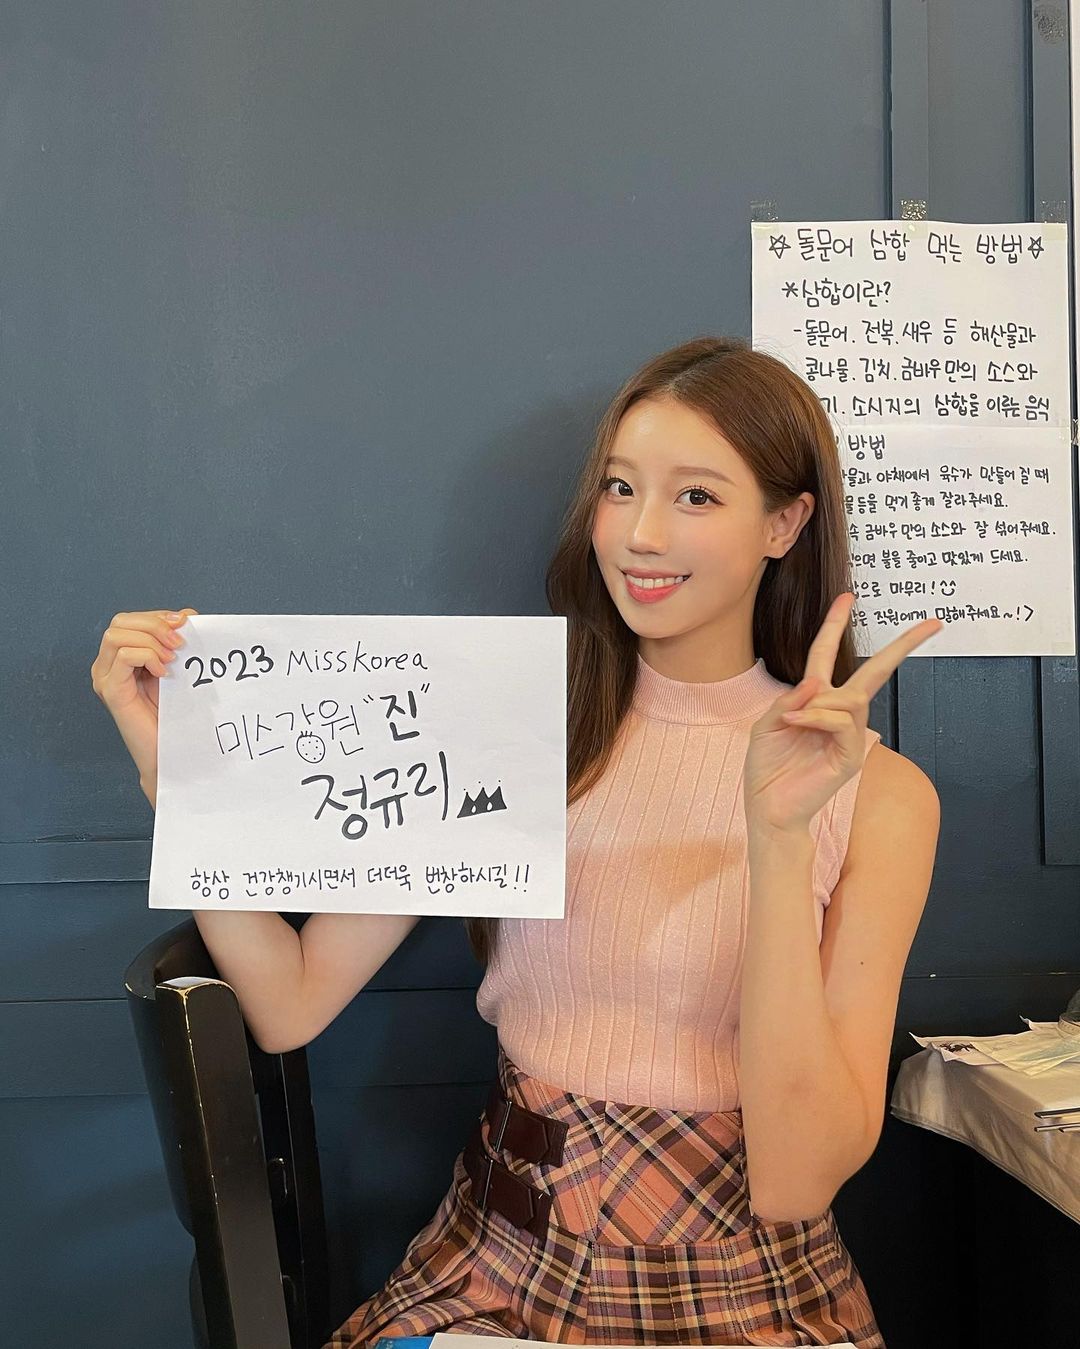 2023 Miss Korea
미스강원 "진"
정규리
항상 건강챙기시면서 더더욱 번창하시길!!
☆돌문어 삼합 먹는 방법☆
*삼합이란?
-돌문어. 전복. 새우 등 해산물과
콩나물. 김치. 금바우만의 소스와
소시지의 삼합을 이루는 음식
방법
야채에서 육수가 만들어 질 때
먹기 좋게 잘라주세요.
금바우만의 소스와 잘 섞어주세요.
불을 줄이고 맛있게 드세요.
마무리!
직원에게 말해주세요~!>